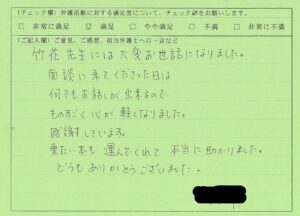 (チェック欄) 弁護活動に対する満足度について、チェック☑をお願いします。
□ 非常に満足 ☑ 満足 □ やや満足 □ 不満 □ 非常に不満
(ご記入欄) ご意見、ご感想、担当弁護士への一言など
竹花先生には大変お世話になりました。
面談に来てくださった日は
何でもお話しが出来るので
ものすごく心が軽くなりました。
感謝しています。
重たい本も運んでくれて本当に助かりました。
どうもありがとうございました。